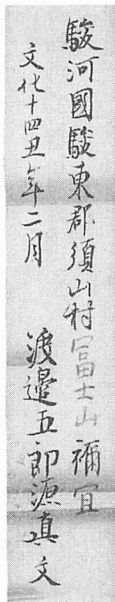 駿河國駿東郡須山村冨士山禰宜
文化十四丑年二月　渡邉五郎源真文